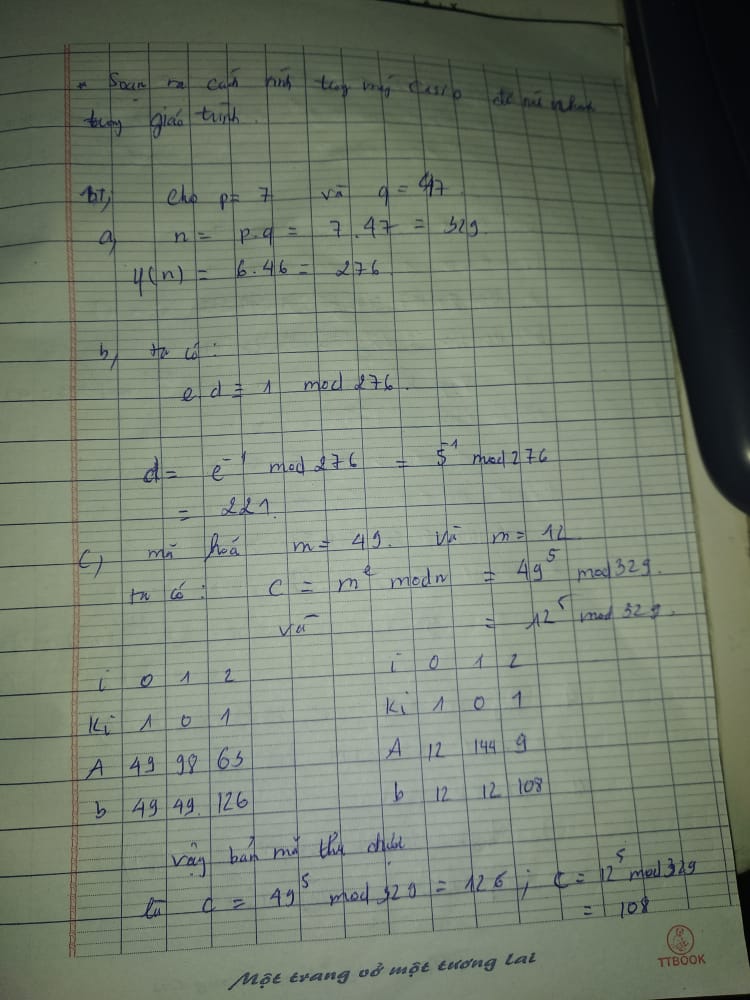 * Soạn ra cách tính tay máy casio để mà nhanh
trong giáo trình.
BT, Cho p = 7 và q = 47
a, n = p.q = 7.47 = 329
φ(n) = 6.46 = 276
b, ta có:
e.d ≡ 1 mod 276.
d = e⁻¹ mod 276 = 5⁻¹ mod 276
= 221.
c) mã hoá m = 49. Và m = 12
ta có: C = mᵉ mod n = 49⁵ mod 329.
và = 12⁵ mod 329.
i 0 1 2 i 0 1 2
Ki 1 0 1 Ki 1 0 1
A 49 98 63 A 12 144 9
b 49 49. 126 b 12 12 108
vậy bản mã thu được
là C = 49⁵ mod 329 = 126; C = 12⁵ mod 329
= 108
Một trang vở một tương lai
TTBOOK